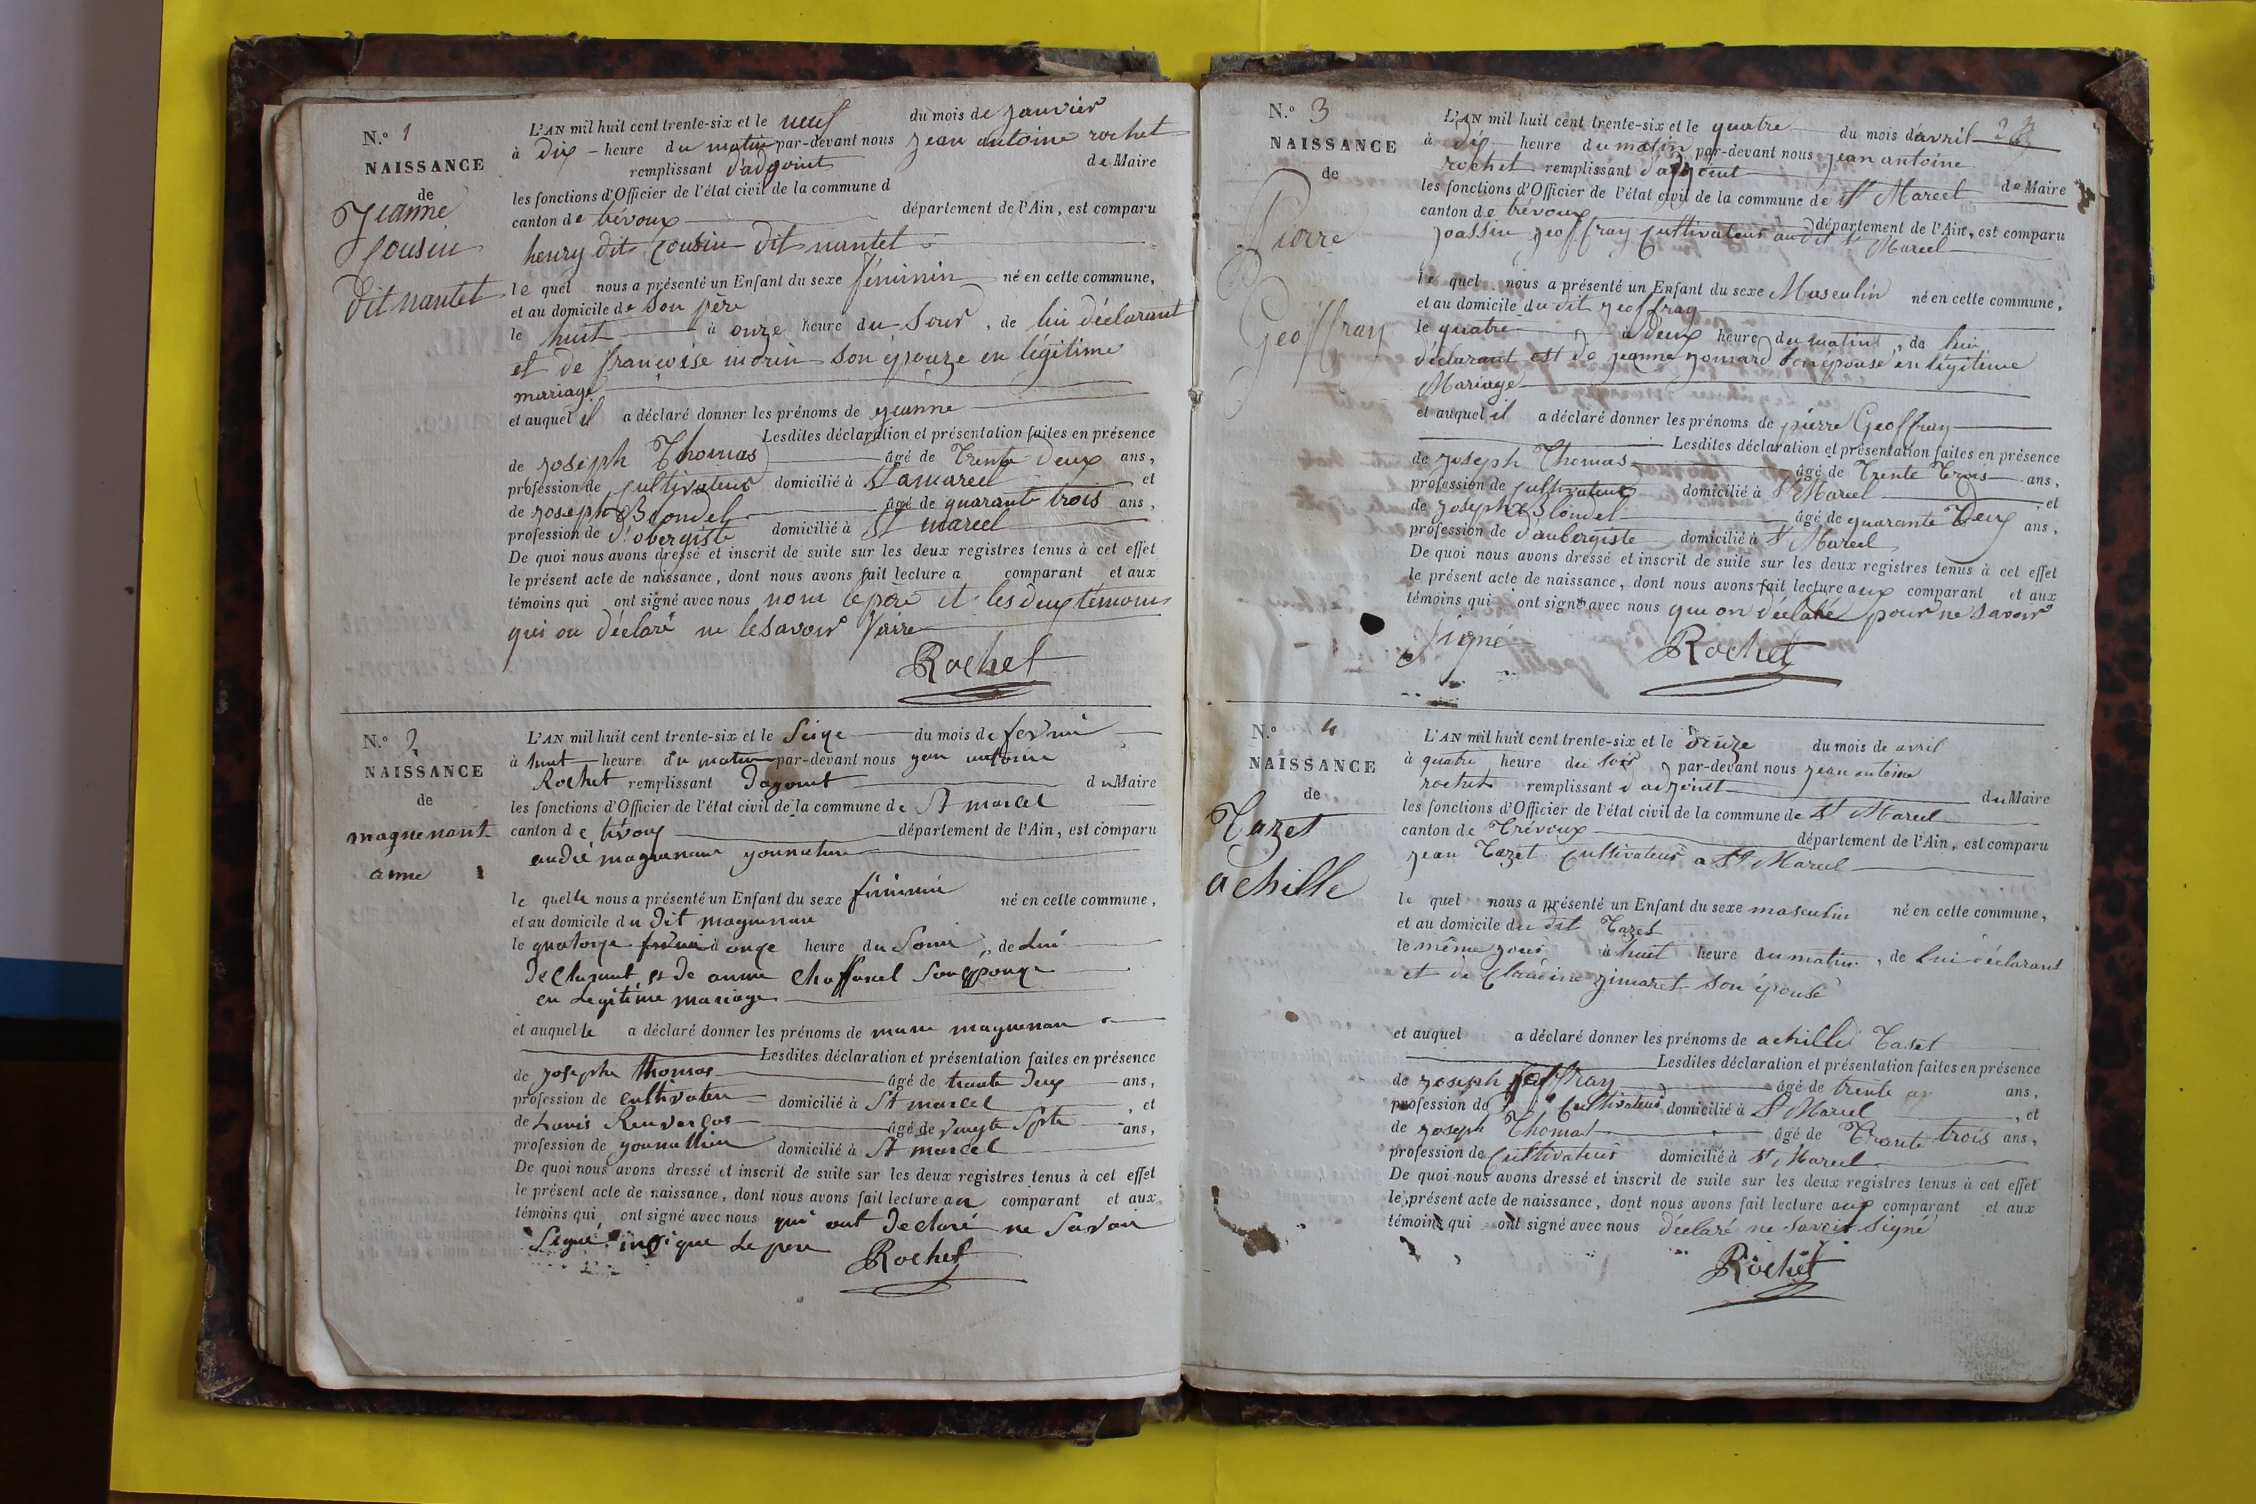 N.º 1
NAISSANCE
de
Jeanne
Cousin
dit nantet
L'AN mil huit cent trente-six et le neuf du mois de janvier
à dix heure du matin par-devant nous jean antoine rochet
remplissant d'adjoint de Maire
les fonctions d'Officier de l'état civil de la commune d
canton de trévoux département de l'Ain, est comparu
henry dit Cousin dit nantet
le quel nous a présenté un Enfant du sexe féminin né en cette commune,
et au domicile de son père
le huit à onze heure du soir, de lui déclarant
et de françoise morin son épouze en légitime
mariage
et auquel il a déclaré donner les prénoms de jeanne
Lesdites déclaration et présentation faites en présence
de joseph Thomas âgé de Trente Deux ans,
profession de Cultivateur domicilié à et
de joseph Blondel âgé de quarante trois ans,
profession de d'obergiste domicilié à St marcel
De quoi nous avons dressé et inscrit de suite sur les deux registres tenus à cet effet
le présent acte de naissance, dont nous avons fait lecture a comparant et aux
témoins qui ont signé avec nous non le père et les deux témoins
qui on déclaré ne le savoir faire
Rochet
N.º 2
NAISSANCE
de
magnenant
anne
L'AN mil huit cent trente-six et le Seize du mois de fevrier
à huit heure du matin par-devant nous jean antoine
Rochet remplissant dagoint du Maire
les fonctions d'Officier de l'état civil de la commune de St marcel
canton de trévoux département de l'Ain, est comparu
andré magnenant
le quelle nous a présenté un Enfant du sexe féminin né en cette commune,
et au domicile du dit magnenan
le quatorze à onze heure du Soir, de Lui
declarant et de anne Chaffanel Son épouze
en Legitime mariage
et auquelle a déclaré donner les prénoms de magnenan
Lesdites déclaration et présentation faites en présence
de josephe thomas âgé de trante deux ans,
profession de cultivateur domicilié à St marcel, et
de Louis âgé de ans,
profession de domicilié à St marcel
De quoi nous avons dressé et inscrit de suite sur les deux registres tenus à cet effet
le présent acte de naissance, dont nous avons fait lecture au comparant et aux
témoins qui ont signé avec nous qui ont declaré ne Savoir
Signé le pere
Rochet
N.º 3
NAISSANCE
de
Pierre
Geoffray
L'AN mil huit cent trente-six et le quatre du mois d'avril
à dix heure du matin par-devant nous jean antoine
rochet remplissant d'adjoint de Maire
les fonctions d'Officier de l'état civil de la commune de St Marcel
canton de trévoux département de l'Ain, est comparu
geoffray Cultivateur au dit St Marcel
le quel nous a présenté un Enfant du sexe Masculin né en cette commune,
et au domicile du dit geoffray
le quatre à deux heure du matin, de lui
déclarant est de jeanne son épouse en légitime
Mariage
et auquel il a déclaré donner les prénoms de pierre Geoffray
Lesdites déclaration et présentation faites en présence
de joseph Thomas âgé de Trente Trois ans,
profession de Cultivateur domicilié à St Marcel et
de joseph Blondel âgé de quarante Deux ans,
profession de d'aubergiste domicilié à St Marcel
De quoi nous avons dressé et inscrit de suite sur les deux registres tenus à cet effet
le présent acte de naissance, dont nous avons fait lecture aux comparant et aux
témoins qui ont signé avec nous que on déclaré pour ne savoir
signé
Rochet
N.º 4
NAISSANCE
de
Tazet
achille
L'AN mil huit cent trente-six et le douze du mois de avril
à quatre heure du soir par-devant nous jean antoine
rochet remplissant d'adjoint du Maire
les fonctions d'Officier de l'état civil de la commune de St Marcel
canton de Trévoux département de l'Ain, est comparu
jean Tazet Cultivateur a St Marcel
le quel nous a présenté un Enfant du sexe masculin né en cette commune,
et au domicile du dit Tazet
le même jour à huit heure du matin, de lui déclarant
et de Claudine jimaret son épouse
et auquel a déclaré donner les prénoms de achille Taset
Lesdites déclaration et présentation faites en présence
de joseph geoffray âgé de trente ans,
profession de Cultivateur domicilié à St Marcel, et
de joseph Thomas âgé de Trante trois ans,
profession de Cultivateur domicilié à St Marcel
De quoi nous avons dressé et inscrit de suite sur les deux registres tenus à cet effet
le présent acte de naissance, dont nous avons fait lecture aux comparant et aux
témoins qui ont signé avec nous déclaré ne savoir signé
Rochet